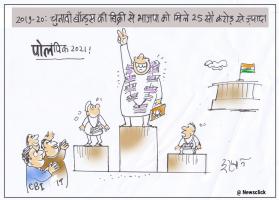 2019-20: चुनावी बॉन्ड्स की बिक्री से भाजपा को मिले 25 सौ करोड़ से ज़्यादा
पोलंपिक 2021!
CBI
IT
@ Newsclick